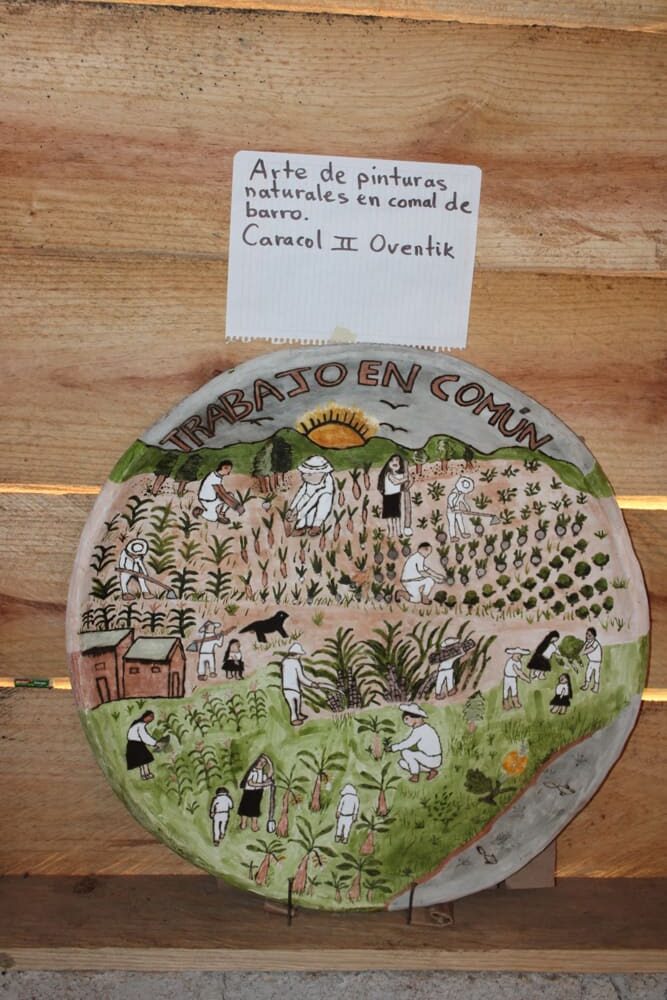 Arte de pinturas
naturales en comal de
barro.
Caracol II Oventik
TRABAJO EN COMÚN